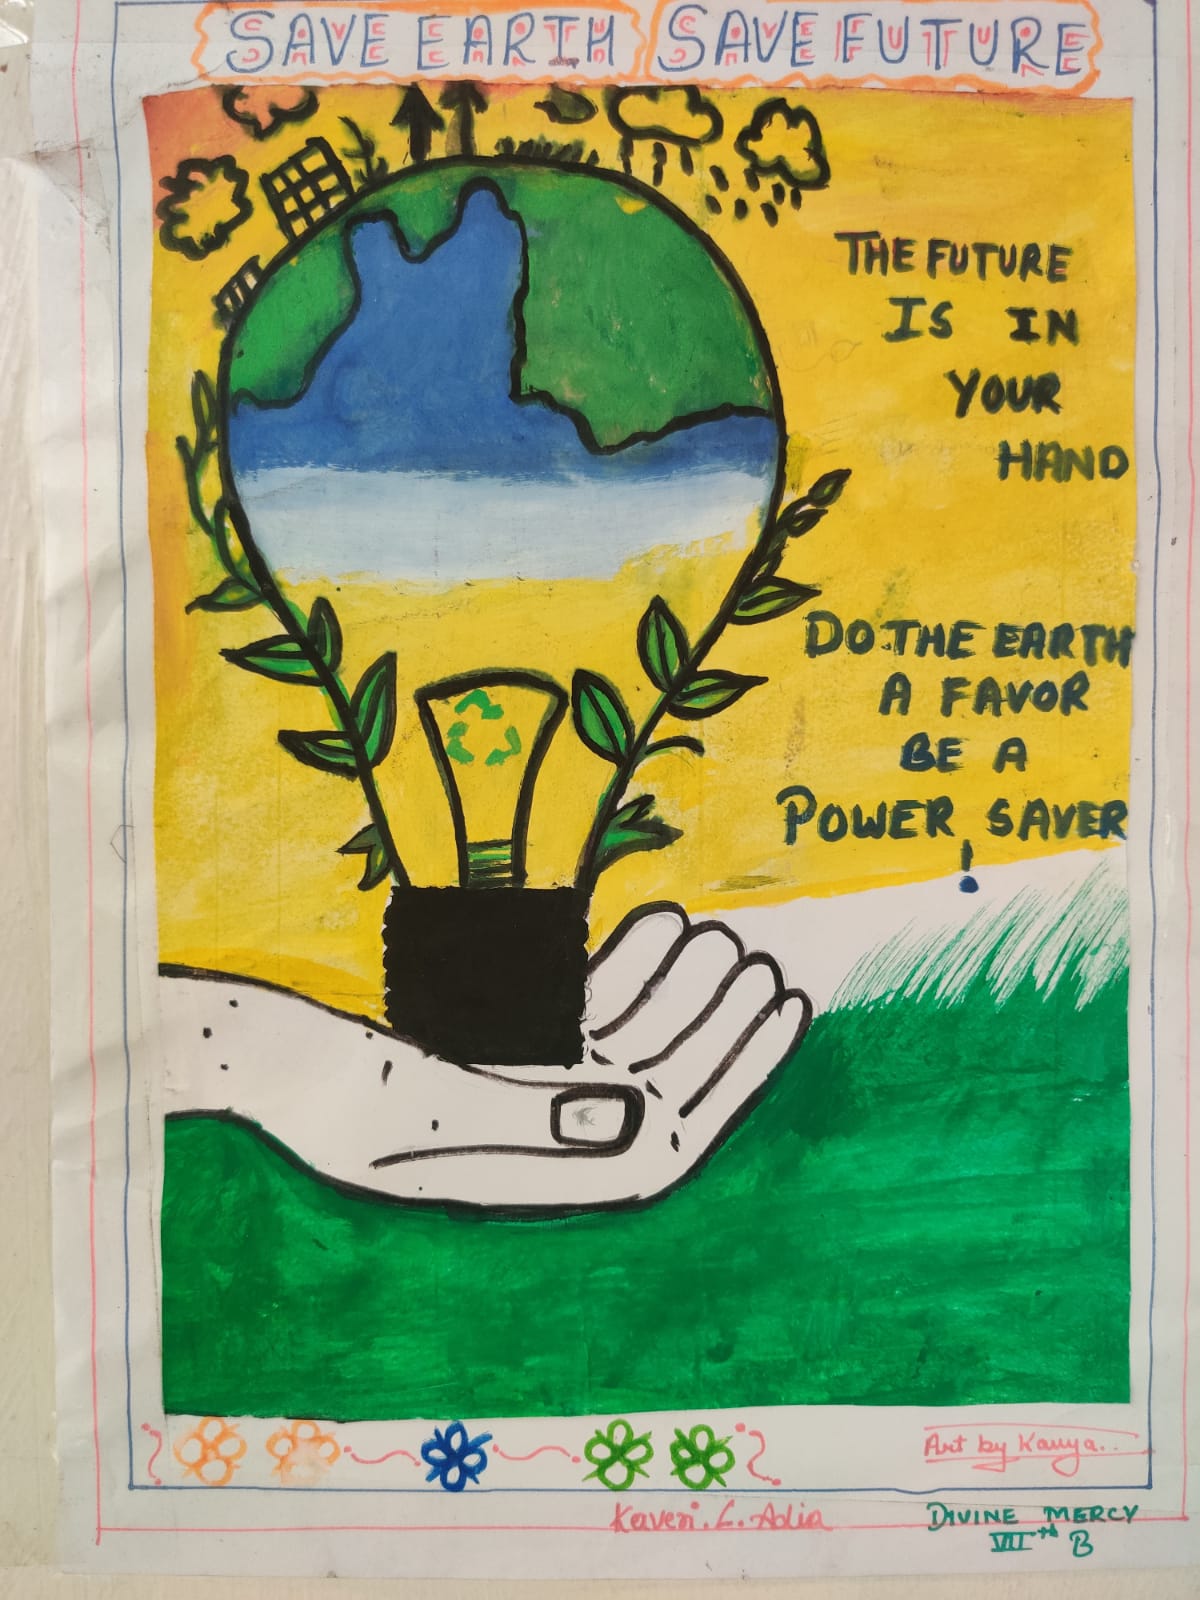 SAVE EARTH SAVE FUTURE
THE FUTURE
IS IN
YOUR
HAND
DO THE EARTH
A FAVOR
BE A
POWER SAVER
!
Art by Kavya..
Kaveri. L. Adia
DIVINE MERCY
VII th B